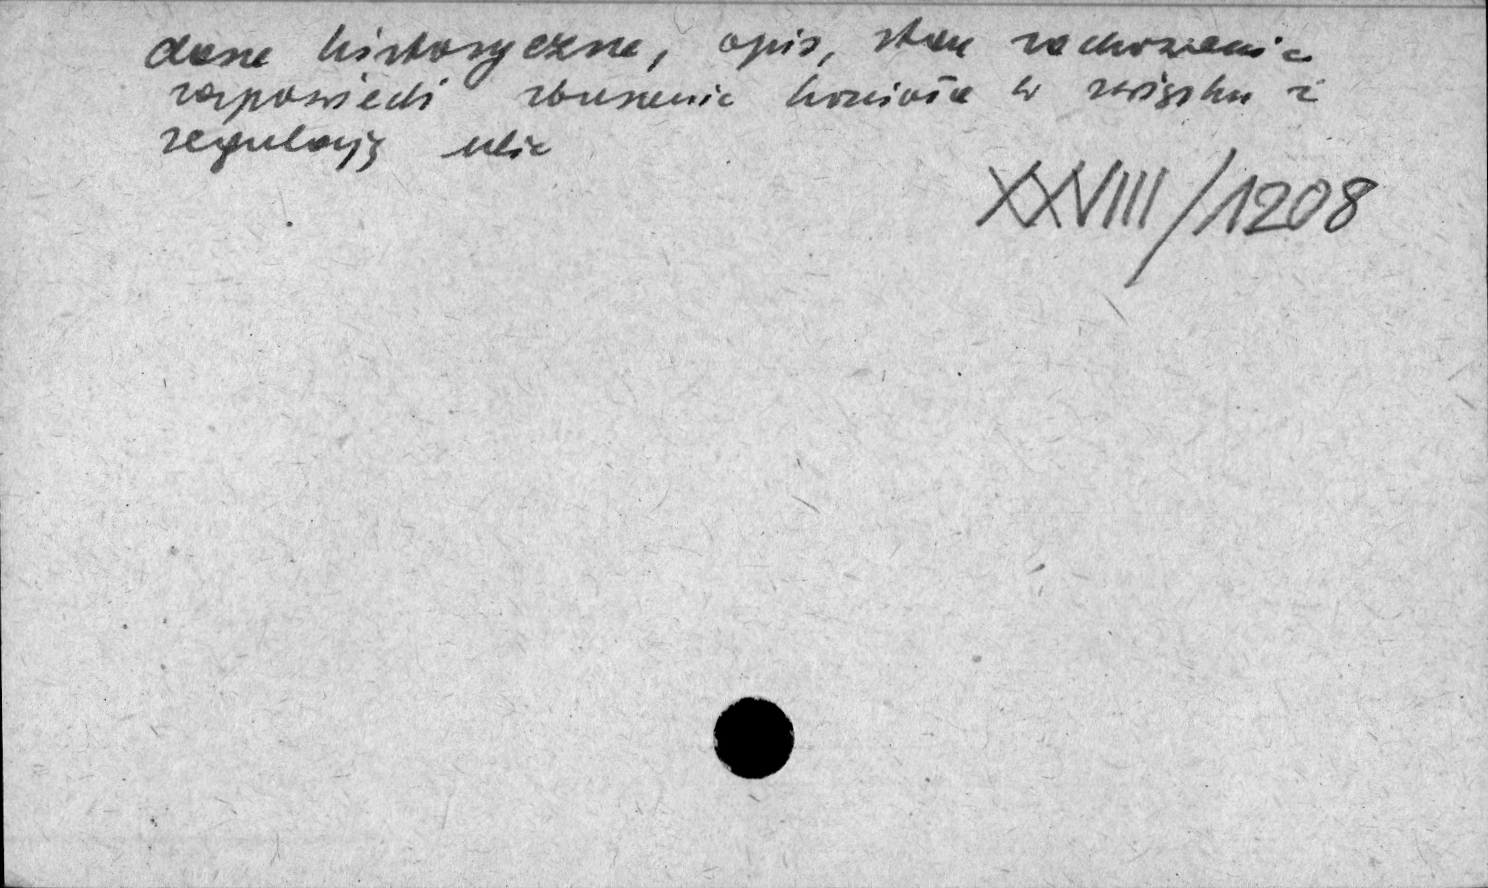 dane historyczne, opis, stan zachowania
zapowiedź zburzenia kościoła w związku z
regulacją ulic
XXVIII/1208